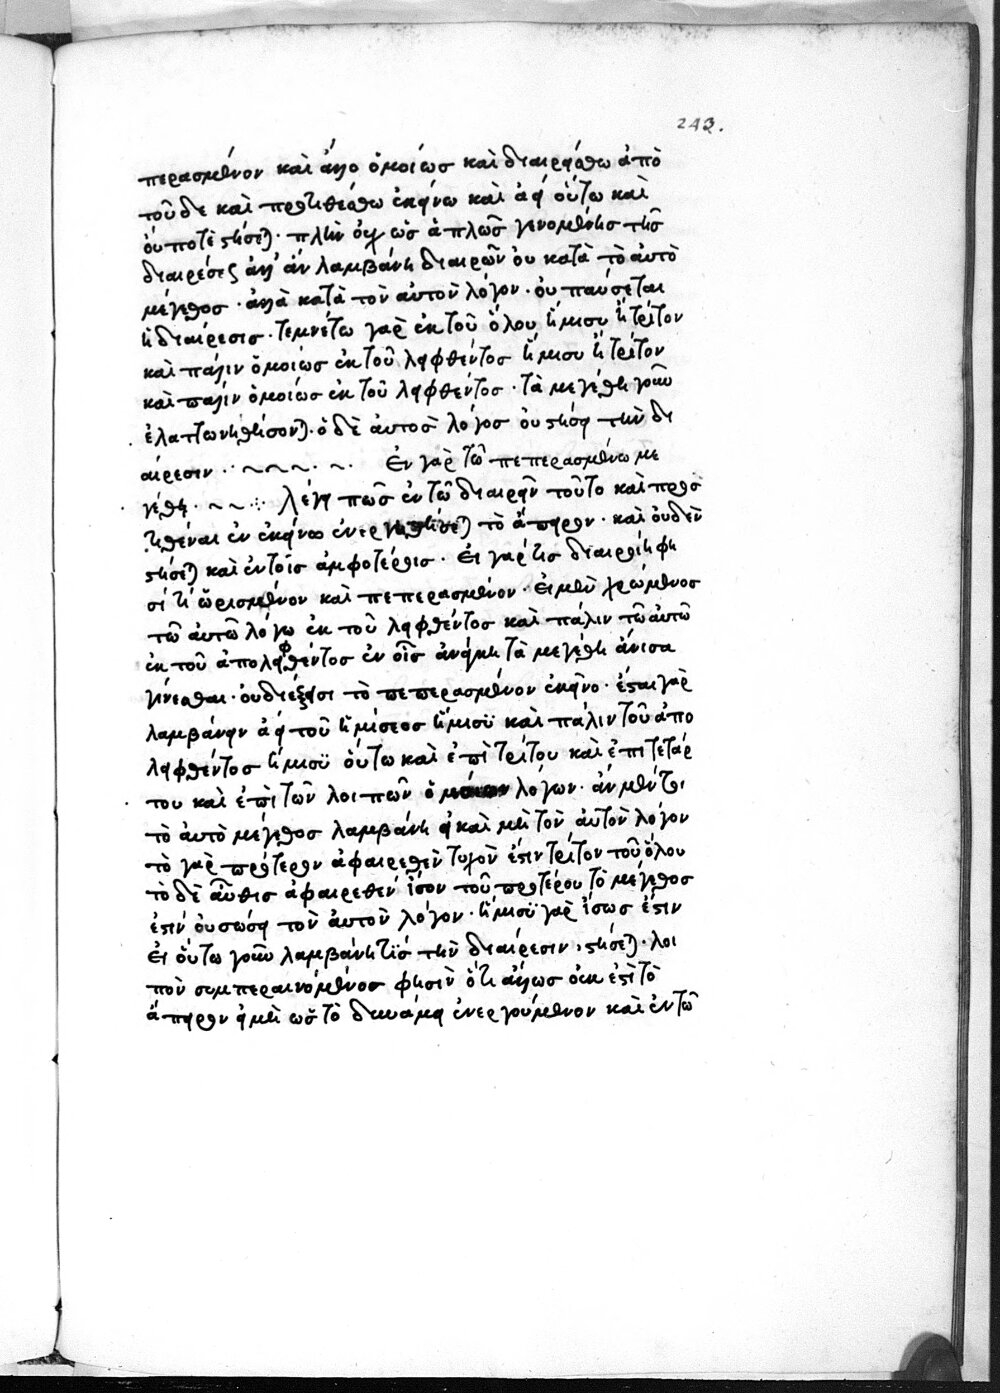 243.
περασμένον καὶ ἄλλο ὁμοίως καὶ διαιρείσθω ἀπὸ
τοῦδε καὶ προστιθέσθω ἐκείνω καὶ ἀεὶ οὕτω καὶ
οὔποτε στήσεται· πλὴν οὐχ ὡς ἁπλῶς γενομένης τῆς
διαιρέσεως ἀλλ' ἂν λαμβάνη διαιρῶν οὐ κατὰ τὸ αὐτὸ
μέγεθος· ἀλλὰ κατὰ τὸν αὐτὸν λόγον· οὐ παύσεται
ἡ διαίρεσις· τεμνέτω γὰρ ἐκ τοῦ ὅλου ἥμισυ ἢ τρίτον
καὶ πάλιν ὁμοίως ἐκ τοῦ λειφθέντος ἥμισυ ἢ τρίτον
καὶ πάλιν ὁμοίως ἐκ τοῦ λειφθέντος· τὰ μεγέθη γοῦν
ἐλαττωνηθήσονται· ὁ δὲ αὐτὸς λόγος οὐ στήσει τὴν δι
αίρεσιν· Ἐν γὰρ τῶ πεπερασμένω με
γέθει· λέγει πῶς ἐν τῶ διαιρεῖν τοῦτο καὶ προσ
τιθέναι ἐν ἐκείνω ἐνεργηθήσεται τὸ ἄπειρον· καὶ οὐδὲν
στήσεται καὶ ἐν τοῖς ἀμφοτέροις· Εἰ γάρ τις διαιροίη φη
σί τί ὡρισμένον καὶ πεπερασμένον· Εἰ μὲν χρώμενος
τῶ αὐτῶ λόγω ἐκ τοῦ λειφθέντος καὶ πάλιν τῶ αὐτῶ
ἐκ τοῦ ἀπολειφθέντος ἐν οἷς ἀνάγκη τὰ μεγέθη ἄνισα
γίνεσθαι· οὐ διέξεισι τὸ πεπερασμένον ἐκεῖνο· ἔσται γὰρ
λαμβάνειν ἀεὶ τοῦ ἡμίσεος ἥμισυ καὶ πάλιν τοῦ ἀπο
λειφθέντος ἥμισυ οὕτω καὶ ἐπὶ τρίτου καὶ ἐπὶ τετάρ
του καὶ ἐπὶ τῶν λοιπῶν λόγων· ἂν μέντοι
τὸ αὐτὸ μέγεθος λαμβάνη εἰ καὶ μὴ τὸν αὐτὸν λόγον
τὸ γὰρ πρότερον ἀφαιρεθὲν τυχὸν ἐστιν τρίτον τοῦ ὅλου
τὸ δὲ αὖθις ἀφαιρεθὲν ἴσον τοῦ προτέρου τὸ μέγεθος
ἐστίν οὐ σώσει τὸν αὐτὸν λόγον· ἥμισυ γὰρ ἴσως ἐστιν
Εἰ οὕτω γοῦν λαμβάνη τίς τὴν διαίρεσιν, στήσεται· λοι
πὸν συμπεραινόμενος φησὶν ὅτι ἄλλως οὐκ ἐστὶ τὸ
ἄπειρον εἰ μὴ ὡς τὸ δυνάμει ἐνεργούμενον καὶ ἐν τῶ